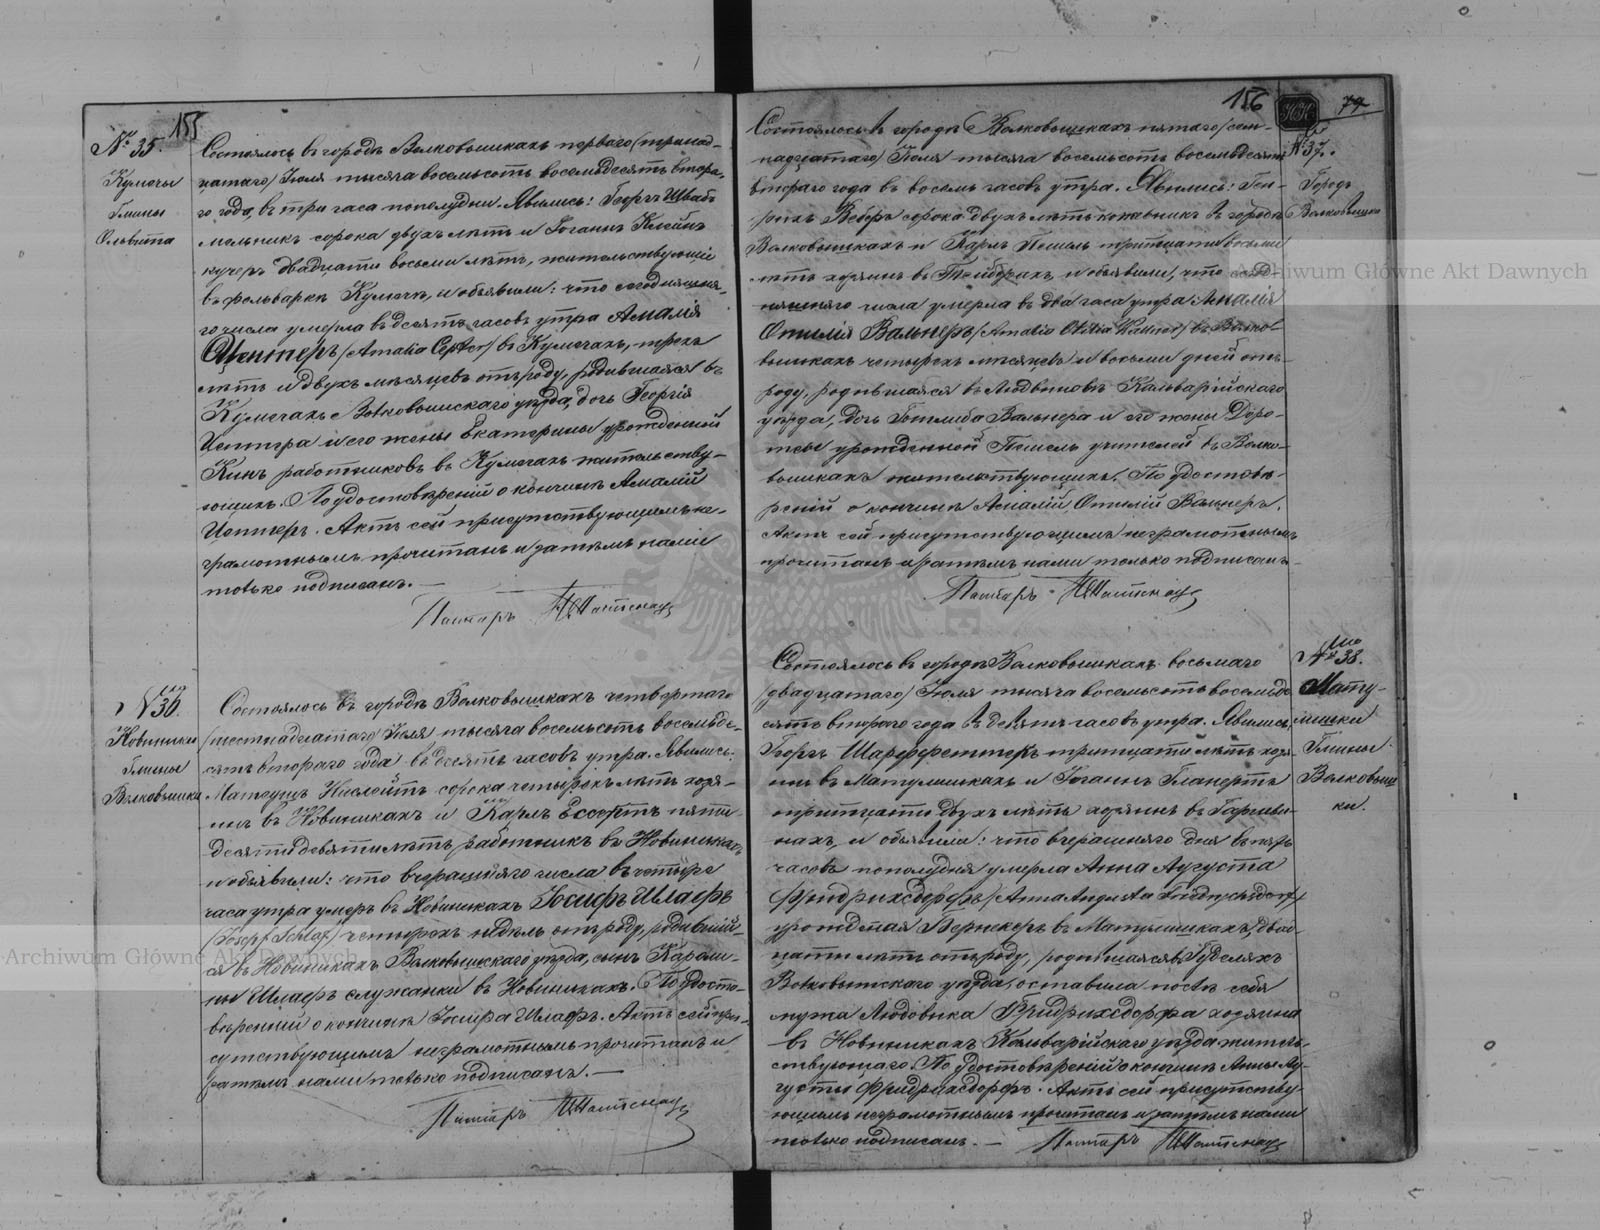 155
№ 35.
Кумечы
Гмины
Ольвита
Состоялось въ городѣ Волковышкахъ перваго (тринад-
цатаго) Іюля тысяча восемьсотъ восемьдесятъ втора-
го года, въ три часа пополудни. Явились: Георгъ Швабъ
мельникъ сорока двухъ лѣтъ и Іоганъ Клейнъ
кучеръ двадцати восьми лѣтъ, жительствующіе
въ фольваркѣ Кумечи, и объявили: что сегодняшня-
го числа умерла въ десять часовъ утра Амалія
Цептеръ (Amalia Cepter) въ Кумечахъ, трехъ
лѣтъ и двухъ мѣсяцевъ отъ роду, родившаяся въ
Кумечахъ Волковышскаго уѣзда, дочь Георгія
Цептера и его жены Екатерины урожденной
Кинъ работниковъ въ Кумечахъ жительству-
ющихъ. По удостовѣреніи о кончинѣ Амаліи
Цептеръ. Актъ сей присутствующимъ не-
грамотнымъ прочитанъ и затѣмъ нами
только подписанъ. —
Пасторъ
№ 36.
Новиники
Гмины
Волковышки
Состоялось въ городѣ Волковышкахъ четвертаго
(шестнадцатаго) Іюля тысяча восемьсотъ восемьде-
сятъ втораго года въ десять часовъ утра. Явились:
Матеушъ сорока четырехъ лѣтъ хозя-
инъ въ Новиникахъ и Карлъ Ессертъ пяти-
десяти девяти лѣтъ, работникъ въ Новиникахъ
и объявили: что вчерашняго числа въ четыре
часа утра умеръ въ Новиникахъ Іосифъ Шлафъ
(Josepf Schlaf) четырехъ недѣль отъ роду, родивший-
ся въ Новиникахъ Волковышскаго уѣзда, сынъ Кароли-
ны Шлафъ служанки въ Новиникахъ. По удосто-
вѣреніи о кончинѣ Іосифа Шлафъ. Актъ сей при-
сутствующимъ неграмотнымъ прочитанъ и
затѣмъ нами только подписанъ. —
Пасторъ
156
79
№ 37.
Городъ
Волковышки
Состоялось въ городѣ Волковышкахъ пятаго (сем-
надцатаго) Іюля тысяча восемьсотъ восемьдесятъ
втораго года въ восемь часовъ утра. Явились: Ген-
рихъ Веберъ сорока двухъ лѣтъ кожевникъ въ городѣ
Волковышкахъ и Карлъ Пешель тритцати восьми
лѣтъ хозяинъ въ и объявили, что сегод-
няшняго числа умерла въ два часа утра Амалія
Отилія Вальнеръ (Amalia Otilia Wallner) въ Волко-
вышкахъ четырехъ мѣсяцевъ и восьми дней отъ
роду, родившаяся въ Людвиновѣ Кальварійскаго
уѣзда, дочь Готлиба Вальнера и его жены Доро-
теи урожденной Пешель учителей въ Волко-
вышкахъ жительствующихъ. По удостовѣ-
реніи о кончинѣ Амаліи Отиліи Вальнеръ.
Актъ сей присутствующимъ неграмотнымъ
прочитанъ и затѣмъ нами только подписанъ —
Пасторъ
№ 38.
Мату-
лишки
Гмины
Волковыш-
ки.
Состоялось въ городѣ Волковышкахъ восьмаго
(двадцатаго) Іюля тысяча восемьсотъ восемьде-
сятъ втораго года въ девять часовъ утра. Явились:
Георгъ Шарффеттеръ тритцати лѣтъ хозя-
инъ въ Матулишкахъ и Іоганъ Гланертъ
тритцати двухъ лѣтъ хозяинъ въ
нахъ, и объявили: что вчерашняго дня въ пять
часовъ пополудни умерла Анна Аугуста
Фридрихсдорфъ (Anna Augusta Fridrychsdorf)
урожденная Бернекеръ въ Матулишкахъ, двад-
цати лѣтъ отъ роду, родившаяся въ Гуделяхъ
Волковышскаго уѣзда, оставила послѣ себя
мужа Людовика Фридрихсдорфа хозяина
въ Новиникахъ Кальварійскаго уѣзда житель-
ствующаго. По удостовѣреніи о кончинѣ Анны Ау-
густы Фридрихсдорфъ. Актъ сей присутству-
ющимъ неграмотнымъ прочитанъ и затѣмъ нами
только подписанъ. — Пасторъ
Archiwum Główne Akt Dawnych
Archiwum Główne Akt Dawnych